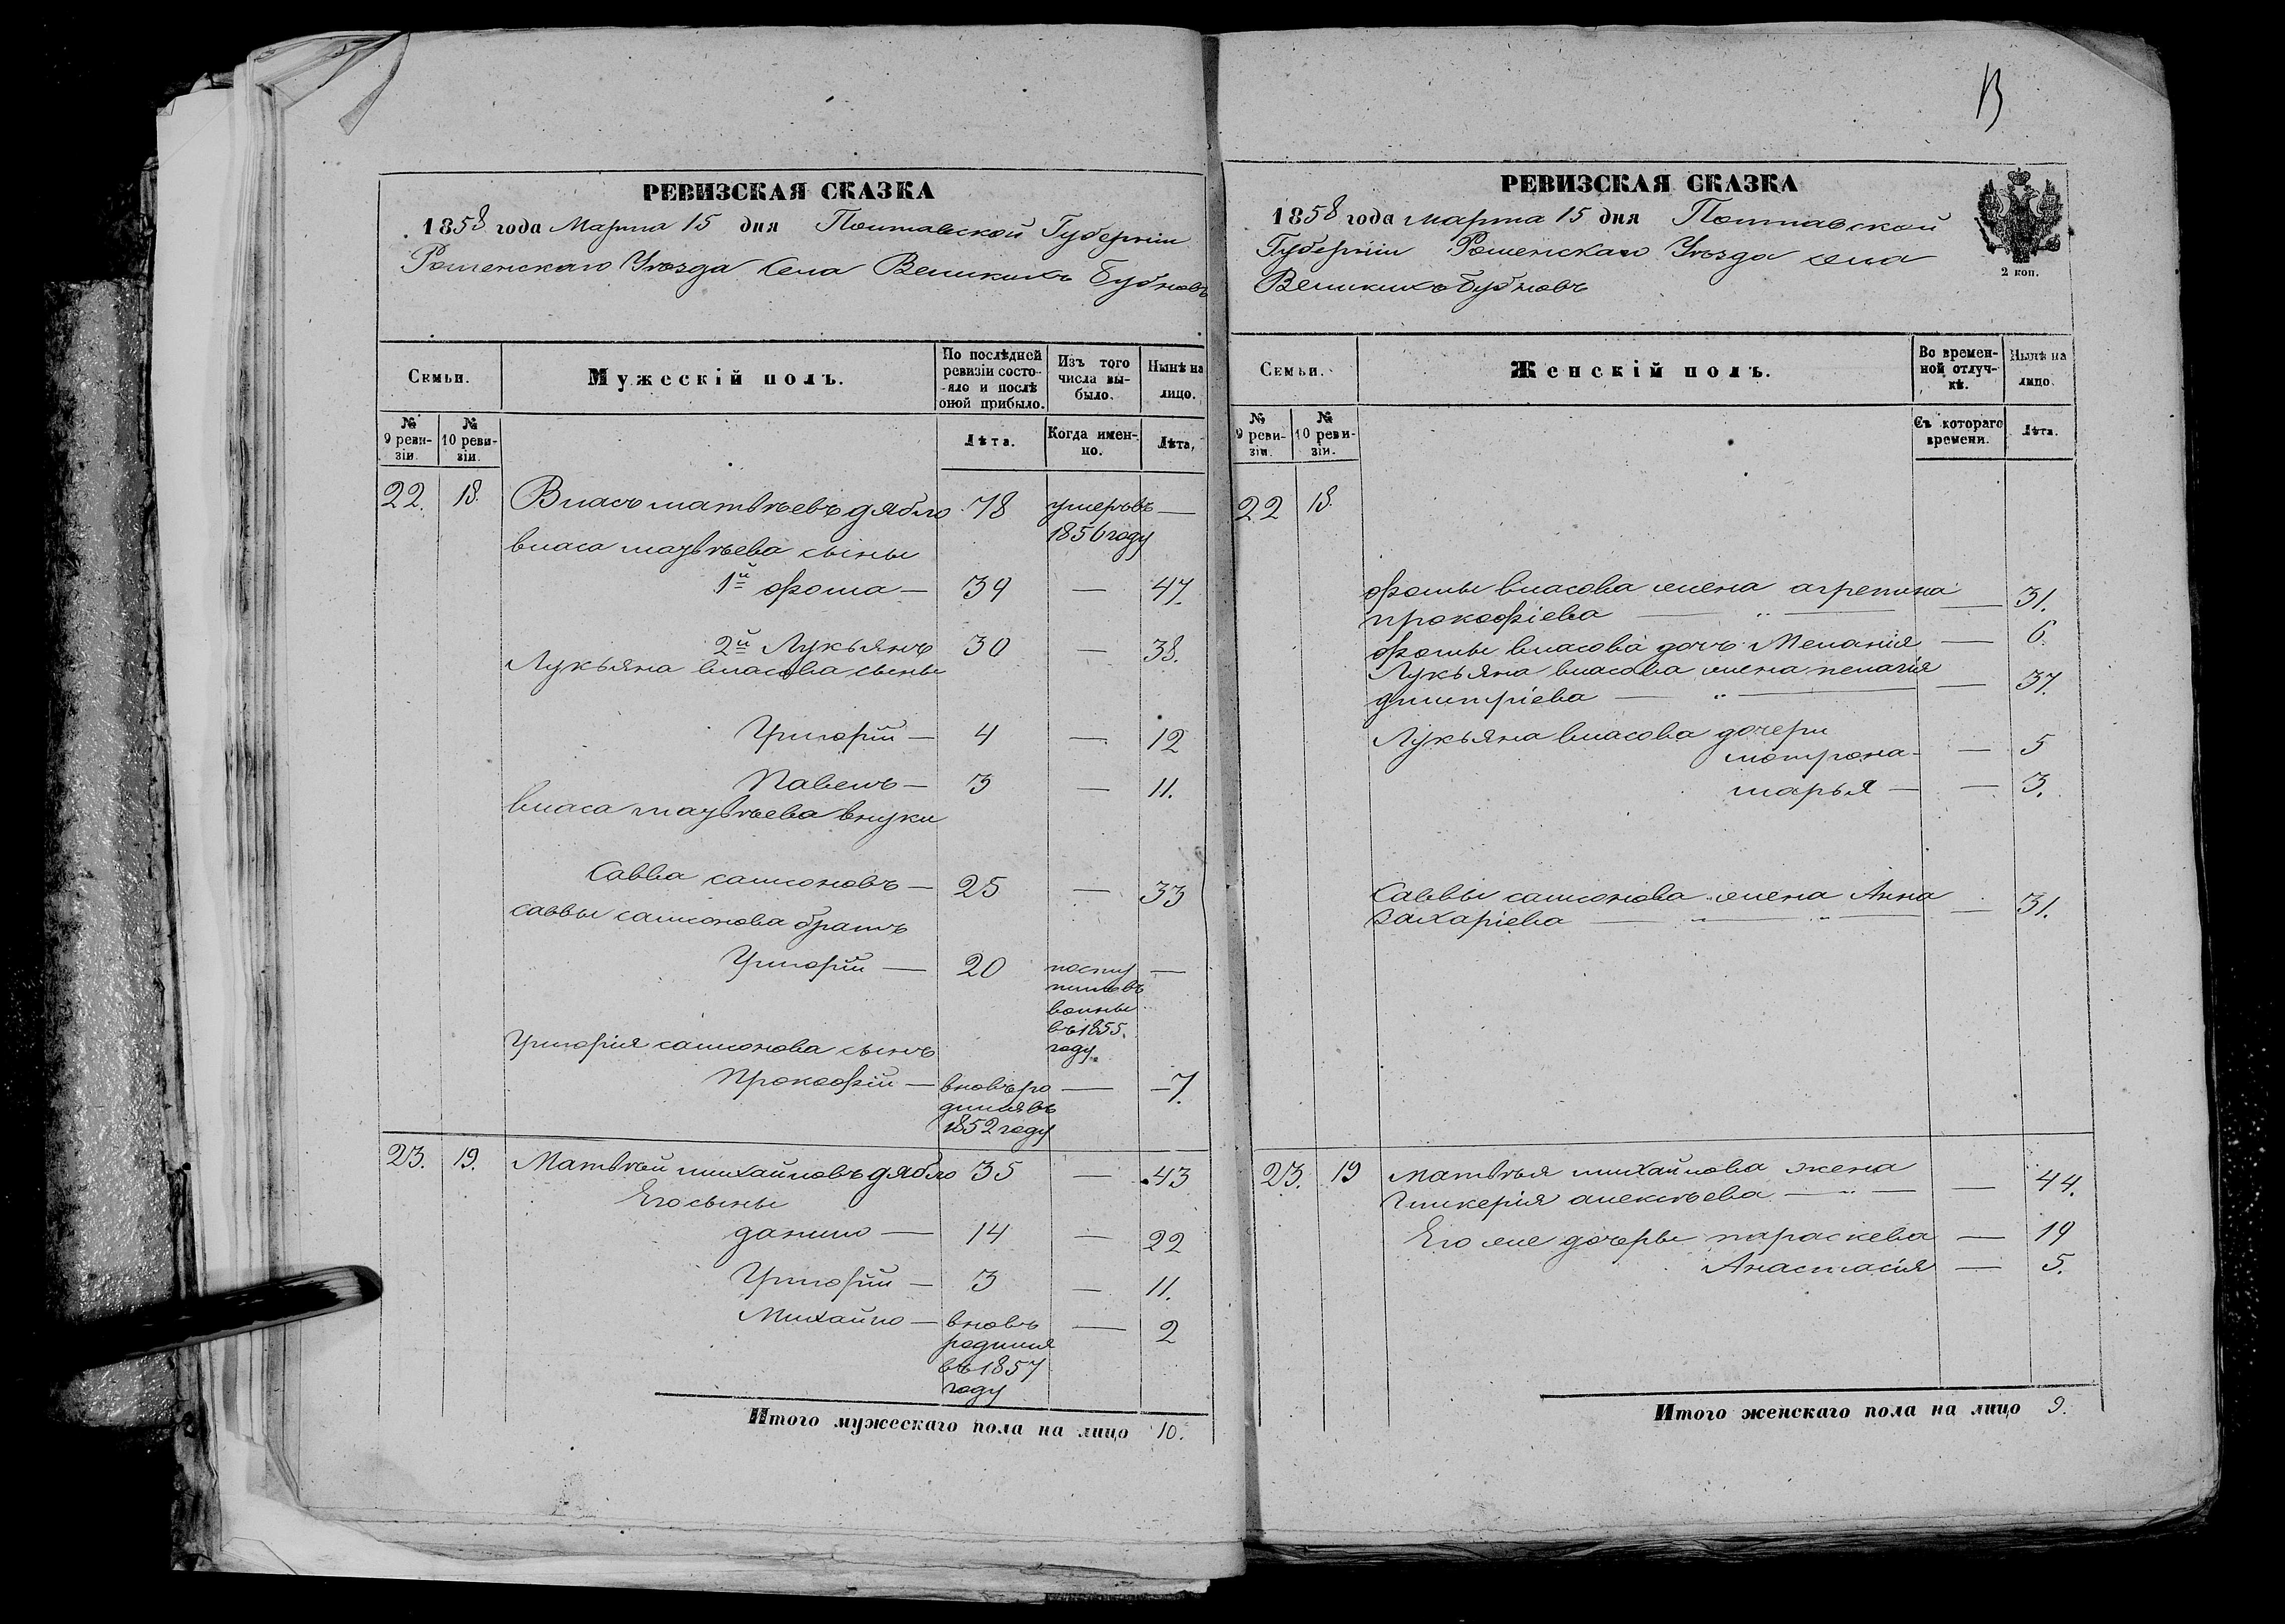 РЕВИЗСКАЯ СКАЗКА
1858 года Марта 15 дня Полтавской Губерніи
Роменскаго Уѣзда Села Великихъ Бубновъ
Семьи.
Мужескій полъ.
По послѣдней ревизіи состояло и послѣ оной прибыло.
Изъ того числа выбыло.
Нынѣ на лицо.
№ 9 ревизіи.
№ 10 ревизіи.
Лѣта.
Когда именно.
Лѣта.
22. 18. Власъ матвѣевъ дябло 78 умеръ въ —
1856 году
власа матвѣева сыны
1й фома — 39 — 47.
2й Лукьянъ 30 — 38.
Лукьяна власова сыны
Григорій — 4 — 12
Павелъ — 3 — 11.
власа матвѣева внуки
Савва самсоновъ — 25 — 33
саввы самсонова братъ
Григорій — 20 посту —
пилъ въ
воины
въ 1855.
году.
Григорія самсонова сынъ
Прокофій — вновь ро — — 7.
дился въ
1852 году
23. 19. Матвѣй михайловъ дябло 35 — 43
Его сыны
данило — 14 — 22
Григорій — 3 — 11.
Михайло — вновь — 2
родился
въ 1857
году
Итого мужескаго пола на лицо 10.
13
РЕВИЗСКАЯ СКАЗКА
1858 года марта 15 дня Полтавской
Губерніи Роменскаго Уѣзда села
Великихъ Бубновъ
2 коп.
Семьи.
Женскій полъ.
Во временной отлучкѣ.
Нынѣ на лицо.
№ 9 ревизіи.
№ 10 ревизіи.
Съ котораго времени.
Лѣта.
22 18.
фомы власова жена агрепина
прокофіева — " — — 31.
фомы власова дочь Меланія — 6.
Лукьяна власова жена пелагія
дмитріева — " — — 37.
Лукьяна власова дочери
мотрона — — 5
марья — — 3.
Саввы самсонова жена Анна
захаріева — " — " — — 31.
23. 19 матвѣя михайлова жена
гликерія алексѣева — " — — 44.
Его же дочеры параскева — 19
Анастасія — 5.
Итого женскаго пола на лицо 9.